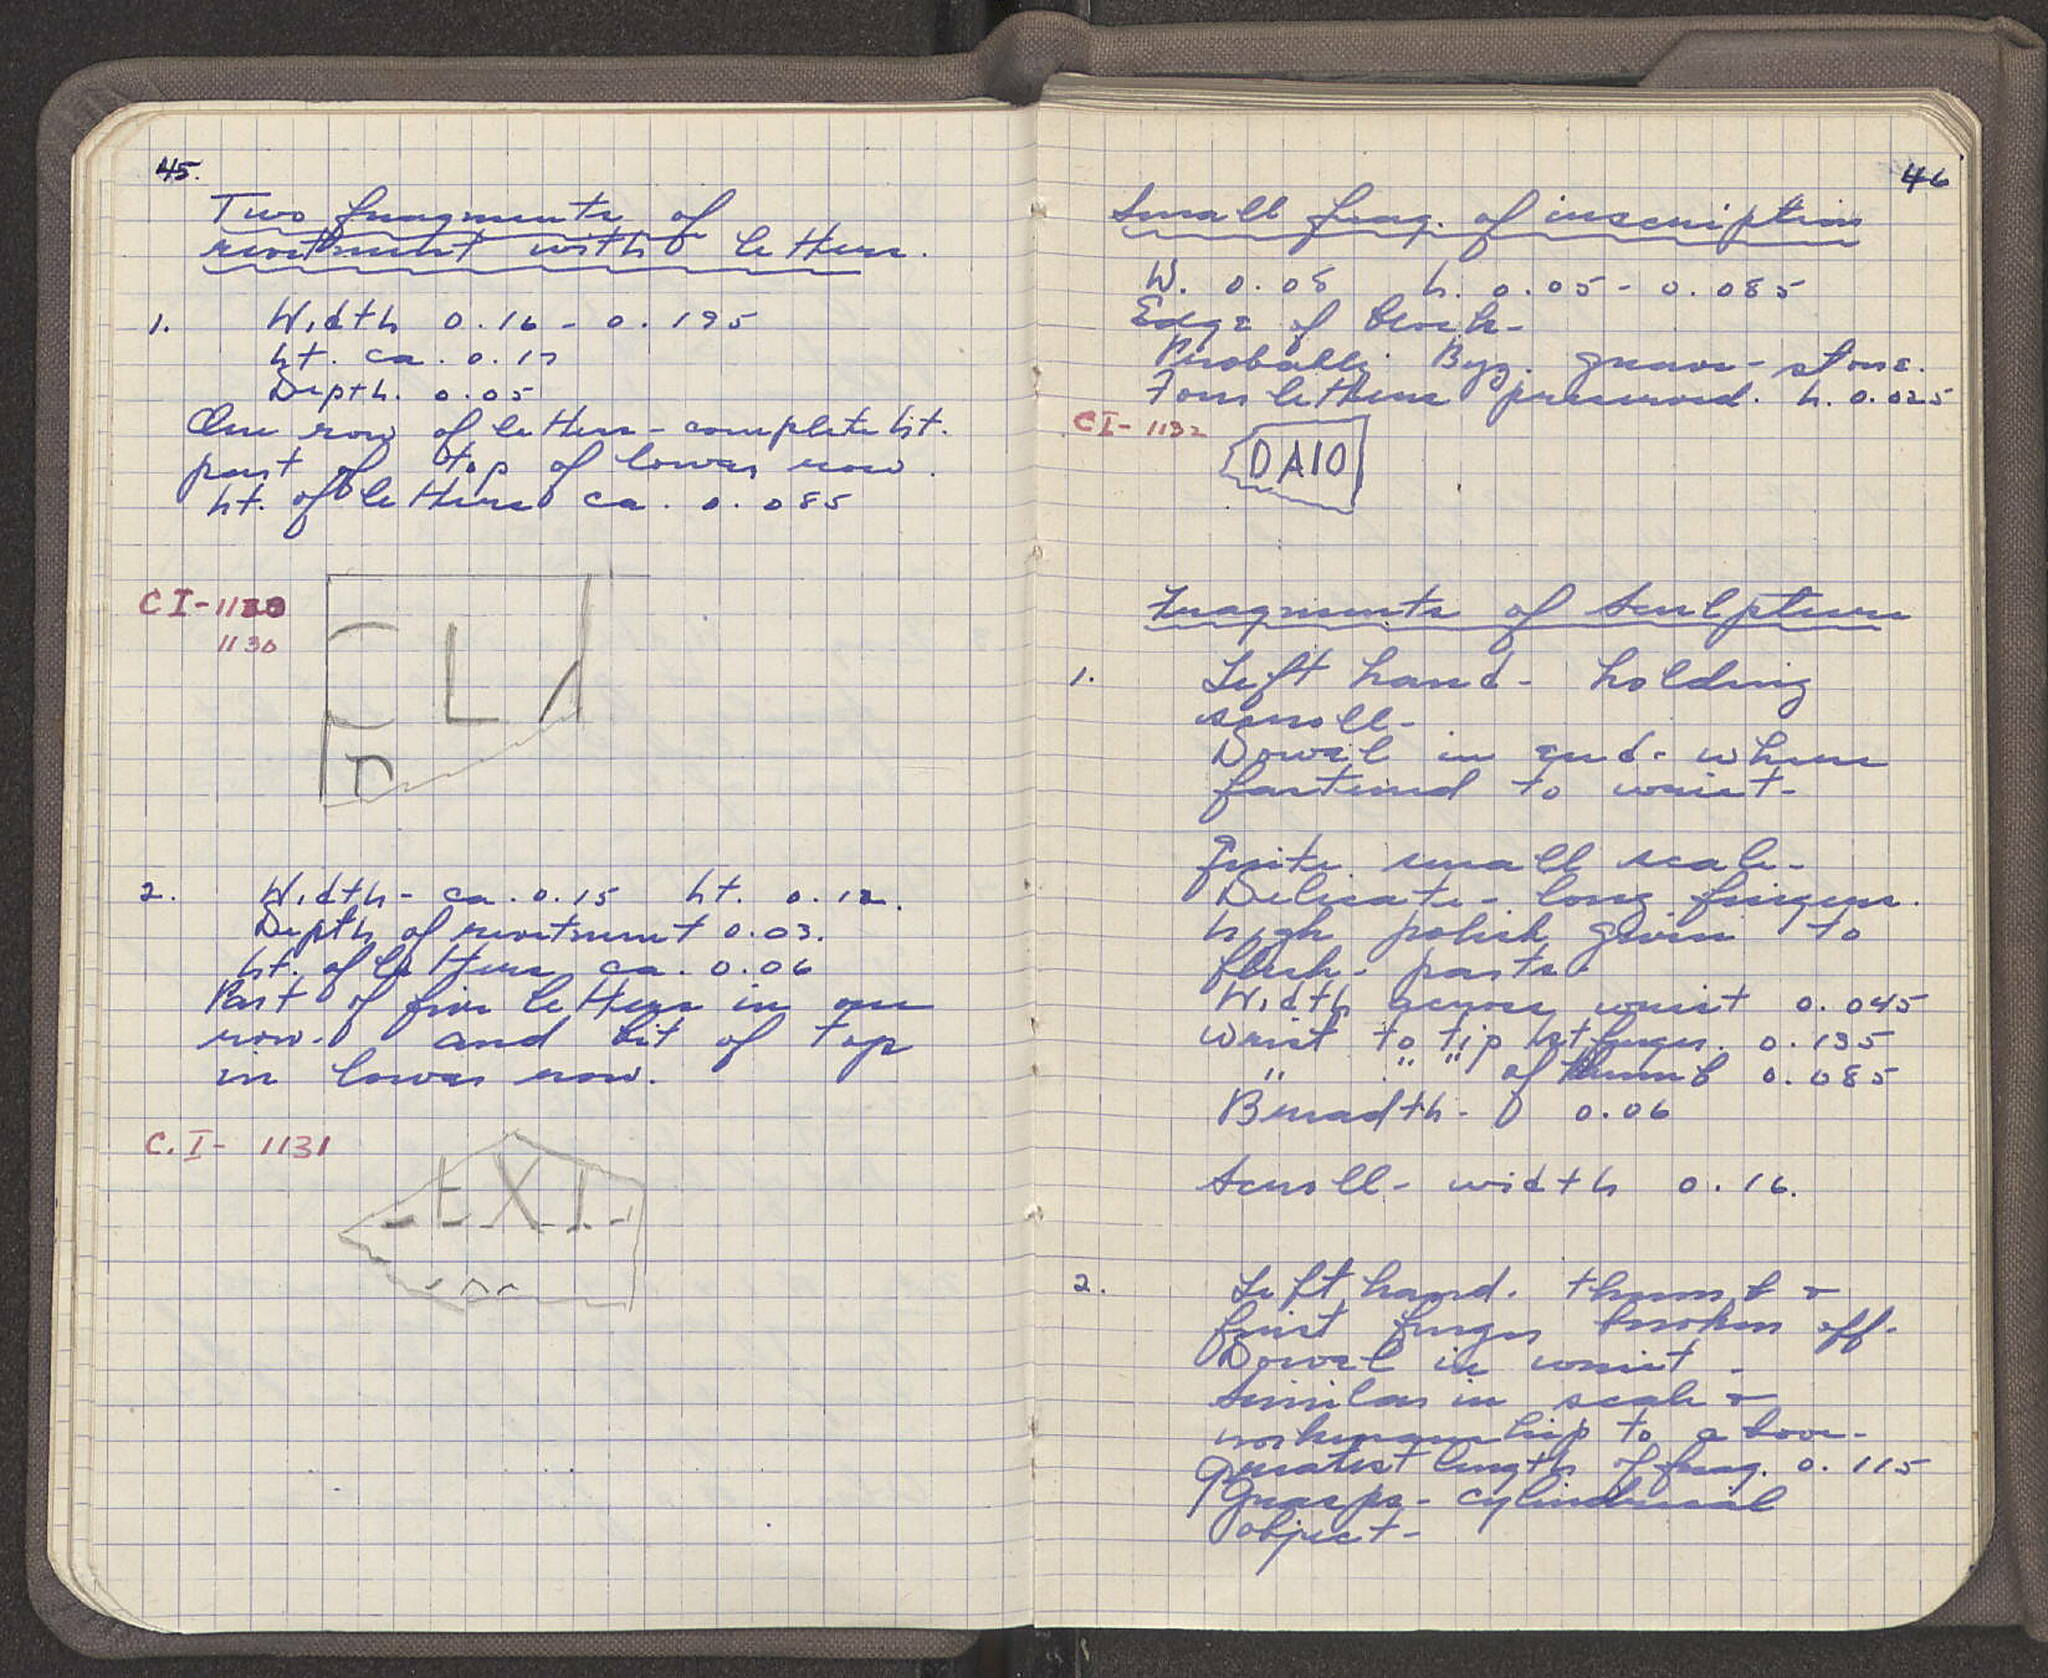 45.
Two fragments of
revetment with letters.
1. Width 0.16 - 0.195
ht. ca. 0.17
Depth. 0.05
One row of letters - complete ht.
part of top of lower row.
ht. of letters ca. 0.085
CI-
1130
CL
2. Width - ca. 0.15 ht. 0.12.
Depth of revetment 0.03.
ht. of letters ca. 0.06
Part of five letters in one
row. and bit of top
in lower row.
C.I- 1131
EXI
46
Small frag. of inscription
W. 0.08 h. 0.05 - 0.085
Edge of block -
Probably Byz. grave - stone.
Four letters preserved. h. 0.025
CI- 1132
DAIO
Fragments of Sculpture
1. Left hand - holding
scroll -
Dowel in end - where
fastened to wrist -
Quite small scale -
Delicate - long fingers.
high polish given to
flesh - parts.
Width across wrist 0.045
Wrist to tip 1st finger. 0.135
" " " of thumb 0.085
Breadth - 0.06
Scroll - width 0.16.
2. Left hand. thumb +
first finger broken off -
Dowel in wrist -
Similar in scale +
workmanship to above -
Greatest length of frag. 0.115
Grasps - cylindrical
object -